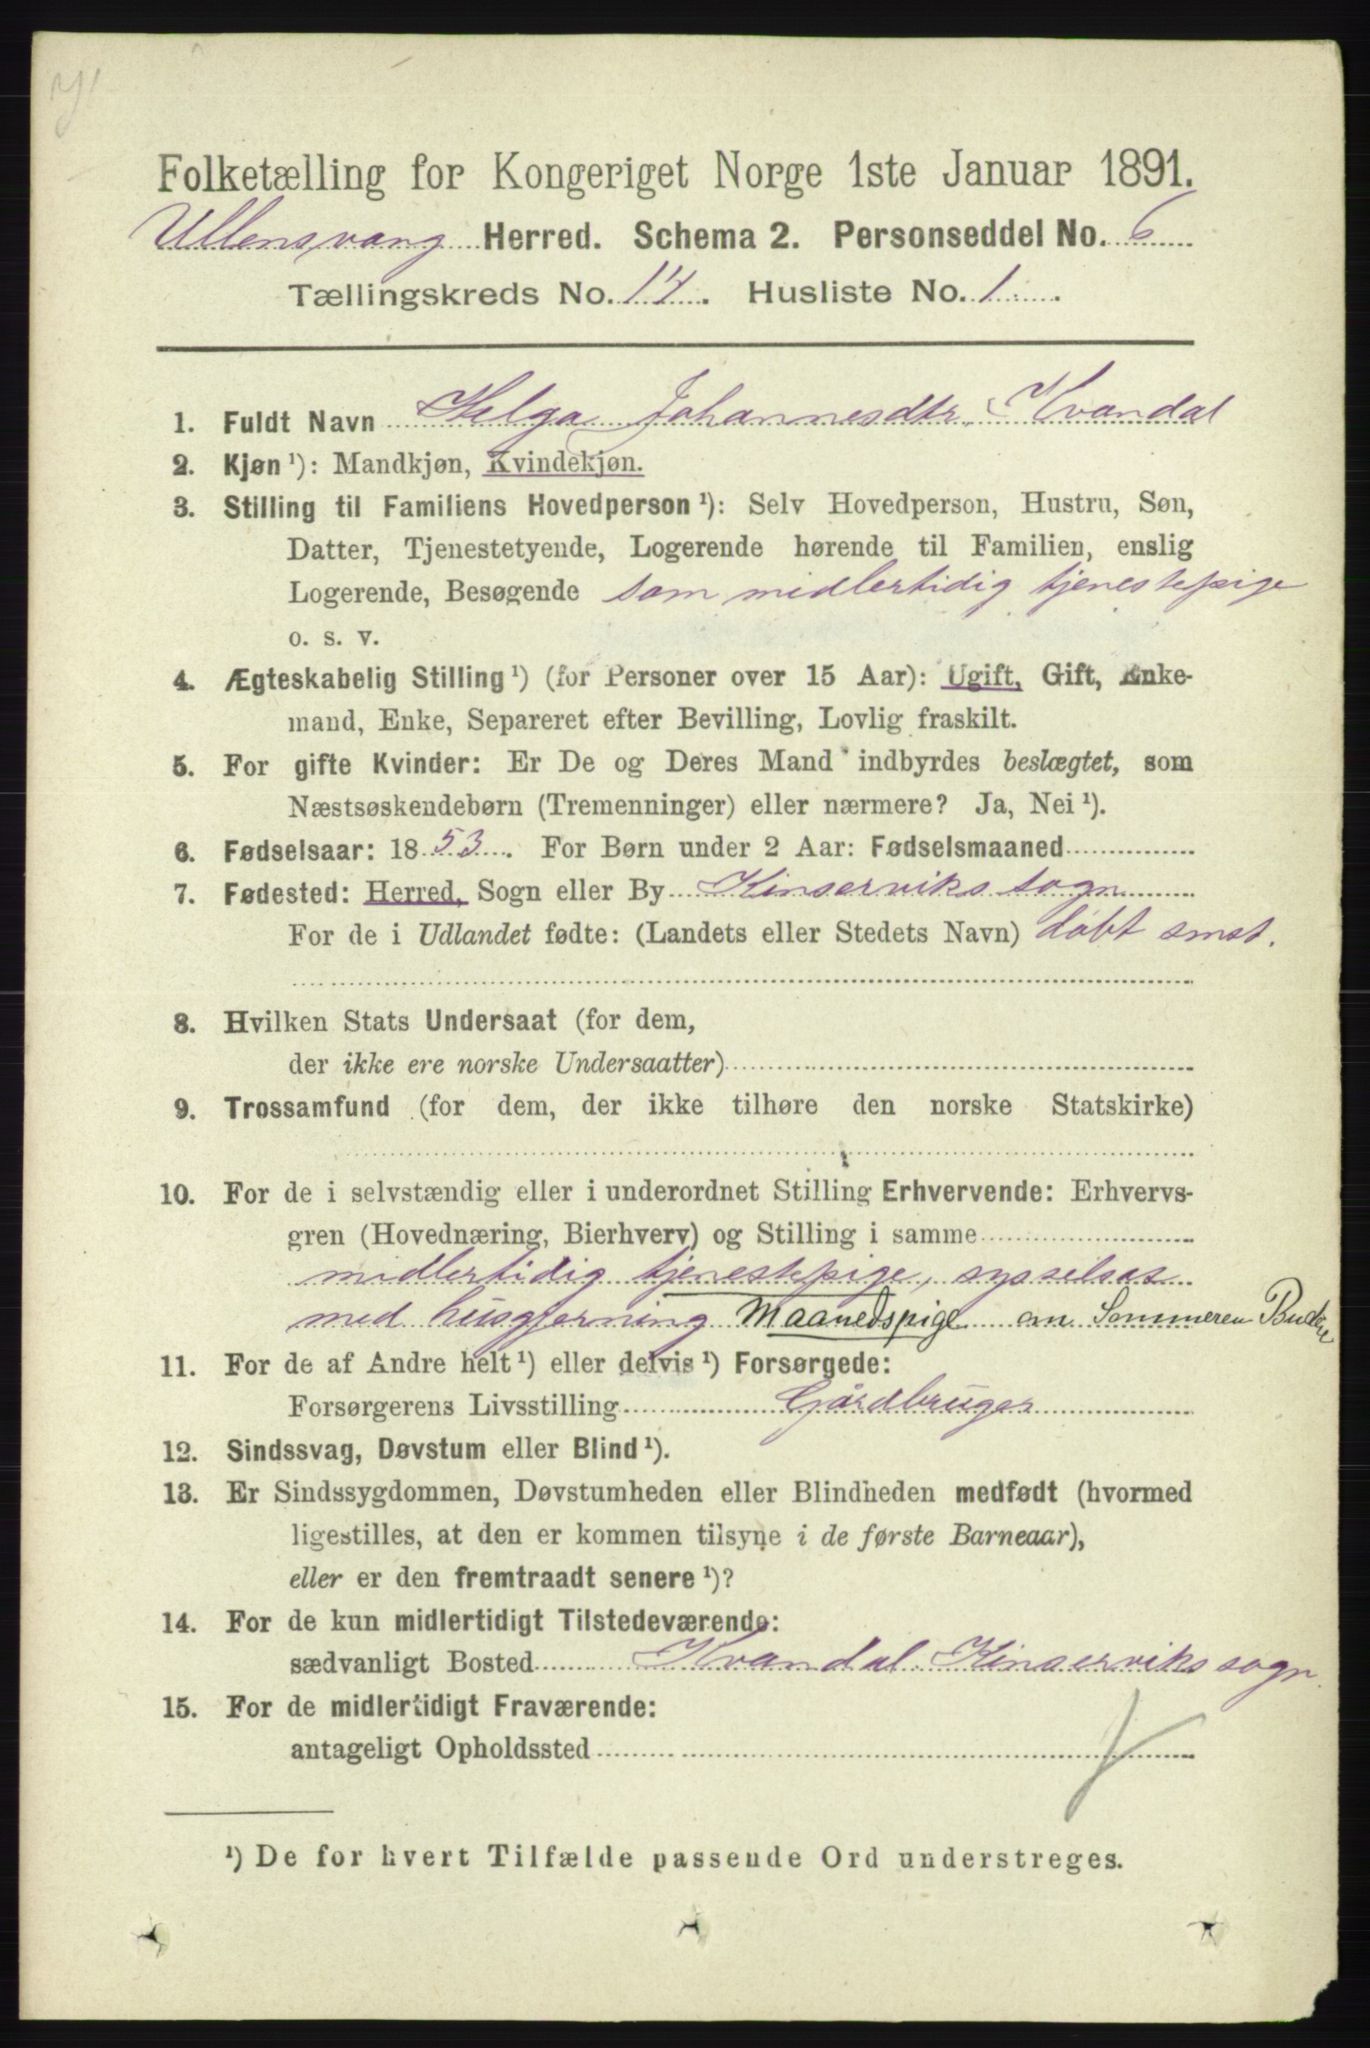 Folketælling for Kongeriget Norge 1ste Januar 1891.
Ullensvang Herred. Schema 2. Personseddel No. 6
Tællingskreds No. 14. Husliste No. 1.
1. Fuldt Navn Helga Johannesdtr. Kvandal
2. Kjøn ¹): Mandkjøn, Kvindekjøn.
3. Stilling til Familiens Hovedperson ¹): Selv Hovedperson, Hustru, Søn,
Datter, Tjenestetyende, Logerende hørende til Familien, enslig
Logerende, Besøgende som midlertidig tjenestepige
o. s. v.
4. Ægteskabelig Stilling ¹) (for Personer over 15 Aar): Ugift, Gift, Enke-
mand, Enke, Separeret efter Bevilling, Lovlig fraskilt.
5. For gifte Kvinder: Er De og Deres Mand indbyrdes beslægtet, som
Næstsøskendebørn (Tremenninger) eller nærmere? Ja, Nei ¹).
6. Fødselsaar: 1853. For Børn under 2 Aar: Fødselsmaaned
7. Fødested: Herred, Sogn eller By Kinserviks sogn
For de i Udlandet fødte: (Landets eller Stedets Navn) døbt smst.
8. Hvilken Stats Undersaat (for dem,
der ikke ere norske Undersaatter)
9. Trossamfund (for dem, der ikke tilhøre den norske Statskirke)
10. For de i selvstændig eller i underordnet Stilling Erhvervende: Erhvervs-
gren (Hovednæring, Bierhverv) og Stilling i samme
midlertidig tjenestepige, sysselsas
med husgjerning Maanedspige om Sommeren Budeie
11. For de af Andre helt ¹) eller delvis ¹) Forsørgede:
Forsørgerens Livsstilling Gårdbruger
12. Sindssvag, Døvstum eller Blind ¹).
13. Er Sindssygdommen, Døvstumheden eller Blindheden medfødt (hvormed
ligestilles, at den er kommen tilsyne i de første Barneaar),
eller er den fremtraadt senere ¹)?
14. For de kun midlertidigt Tilstedeværende:
sædvanligt Bosted Kvandal Kinserviks sogn.
15. For de midlertidigt Fraværende:
antageligt Opholdssted
¹) De for hvert Tilfælde passende Ord understreges.